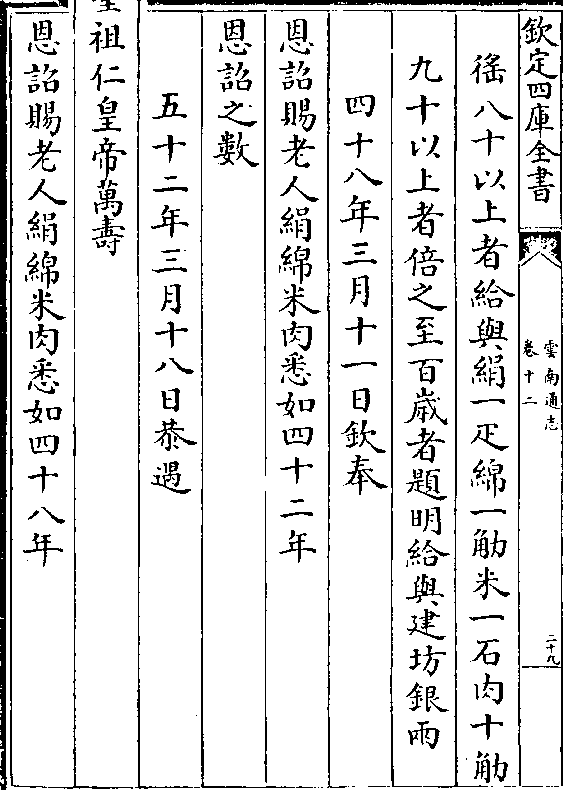 欽定四庫全書
雲南通志
卷十二
二十九
徭八十以上者給與絹一疋綿一觔米一石肉十觔
九十以上者倍之至百歲者題明給與建坊銀兩
四十八年三月十一日欽奉
恩詔賜老人絹綿米肉悉如四十二年
恩詔之數
五十二年三月十八日恭遇
聖祖仁皇帝萬壽
恩詔賜老人絹綿米肉悉如四十八年